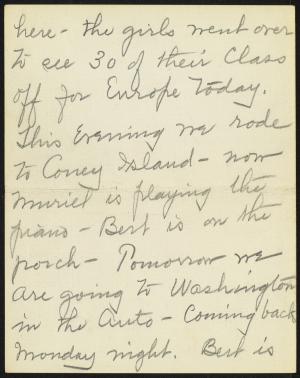 here - the girls went over
to see 30 of their Class
off for Europe Today.
This Evening we rode
to Coney Island - now
Muriel is playing the
piano - Bert is on the
porch - Tomorrow we
are going to Washington
in the Auto - Coming back
Monday night. Bert is